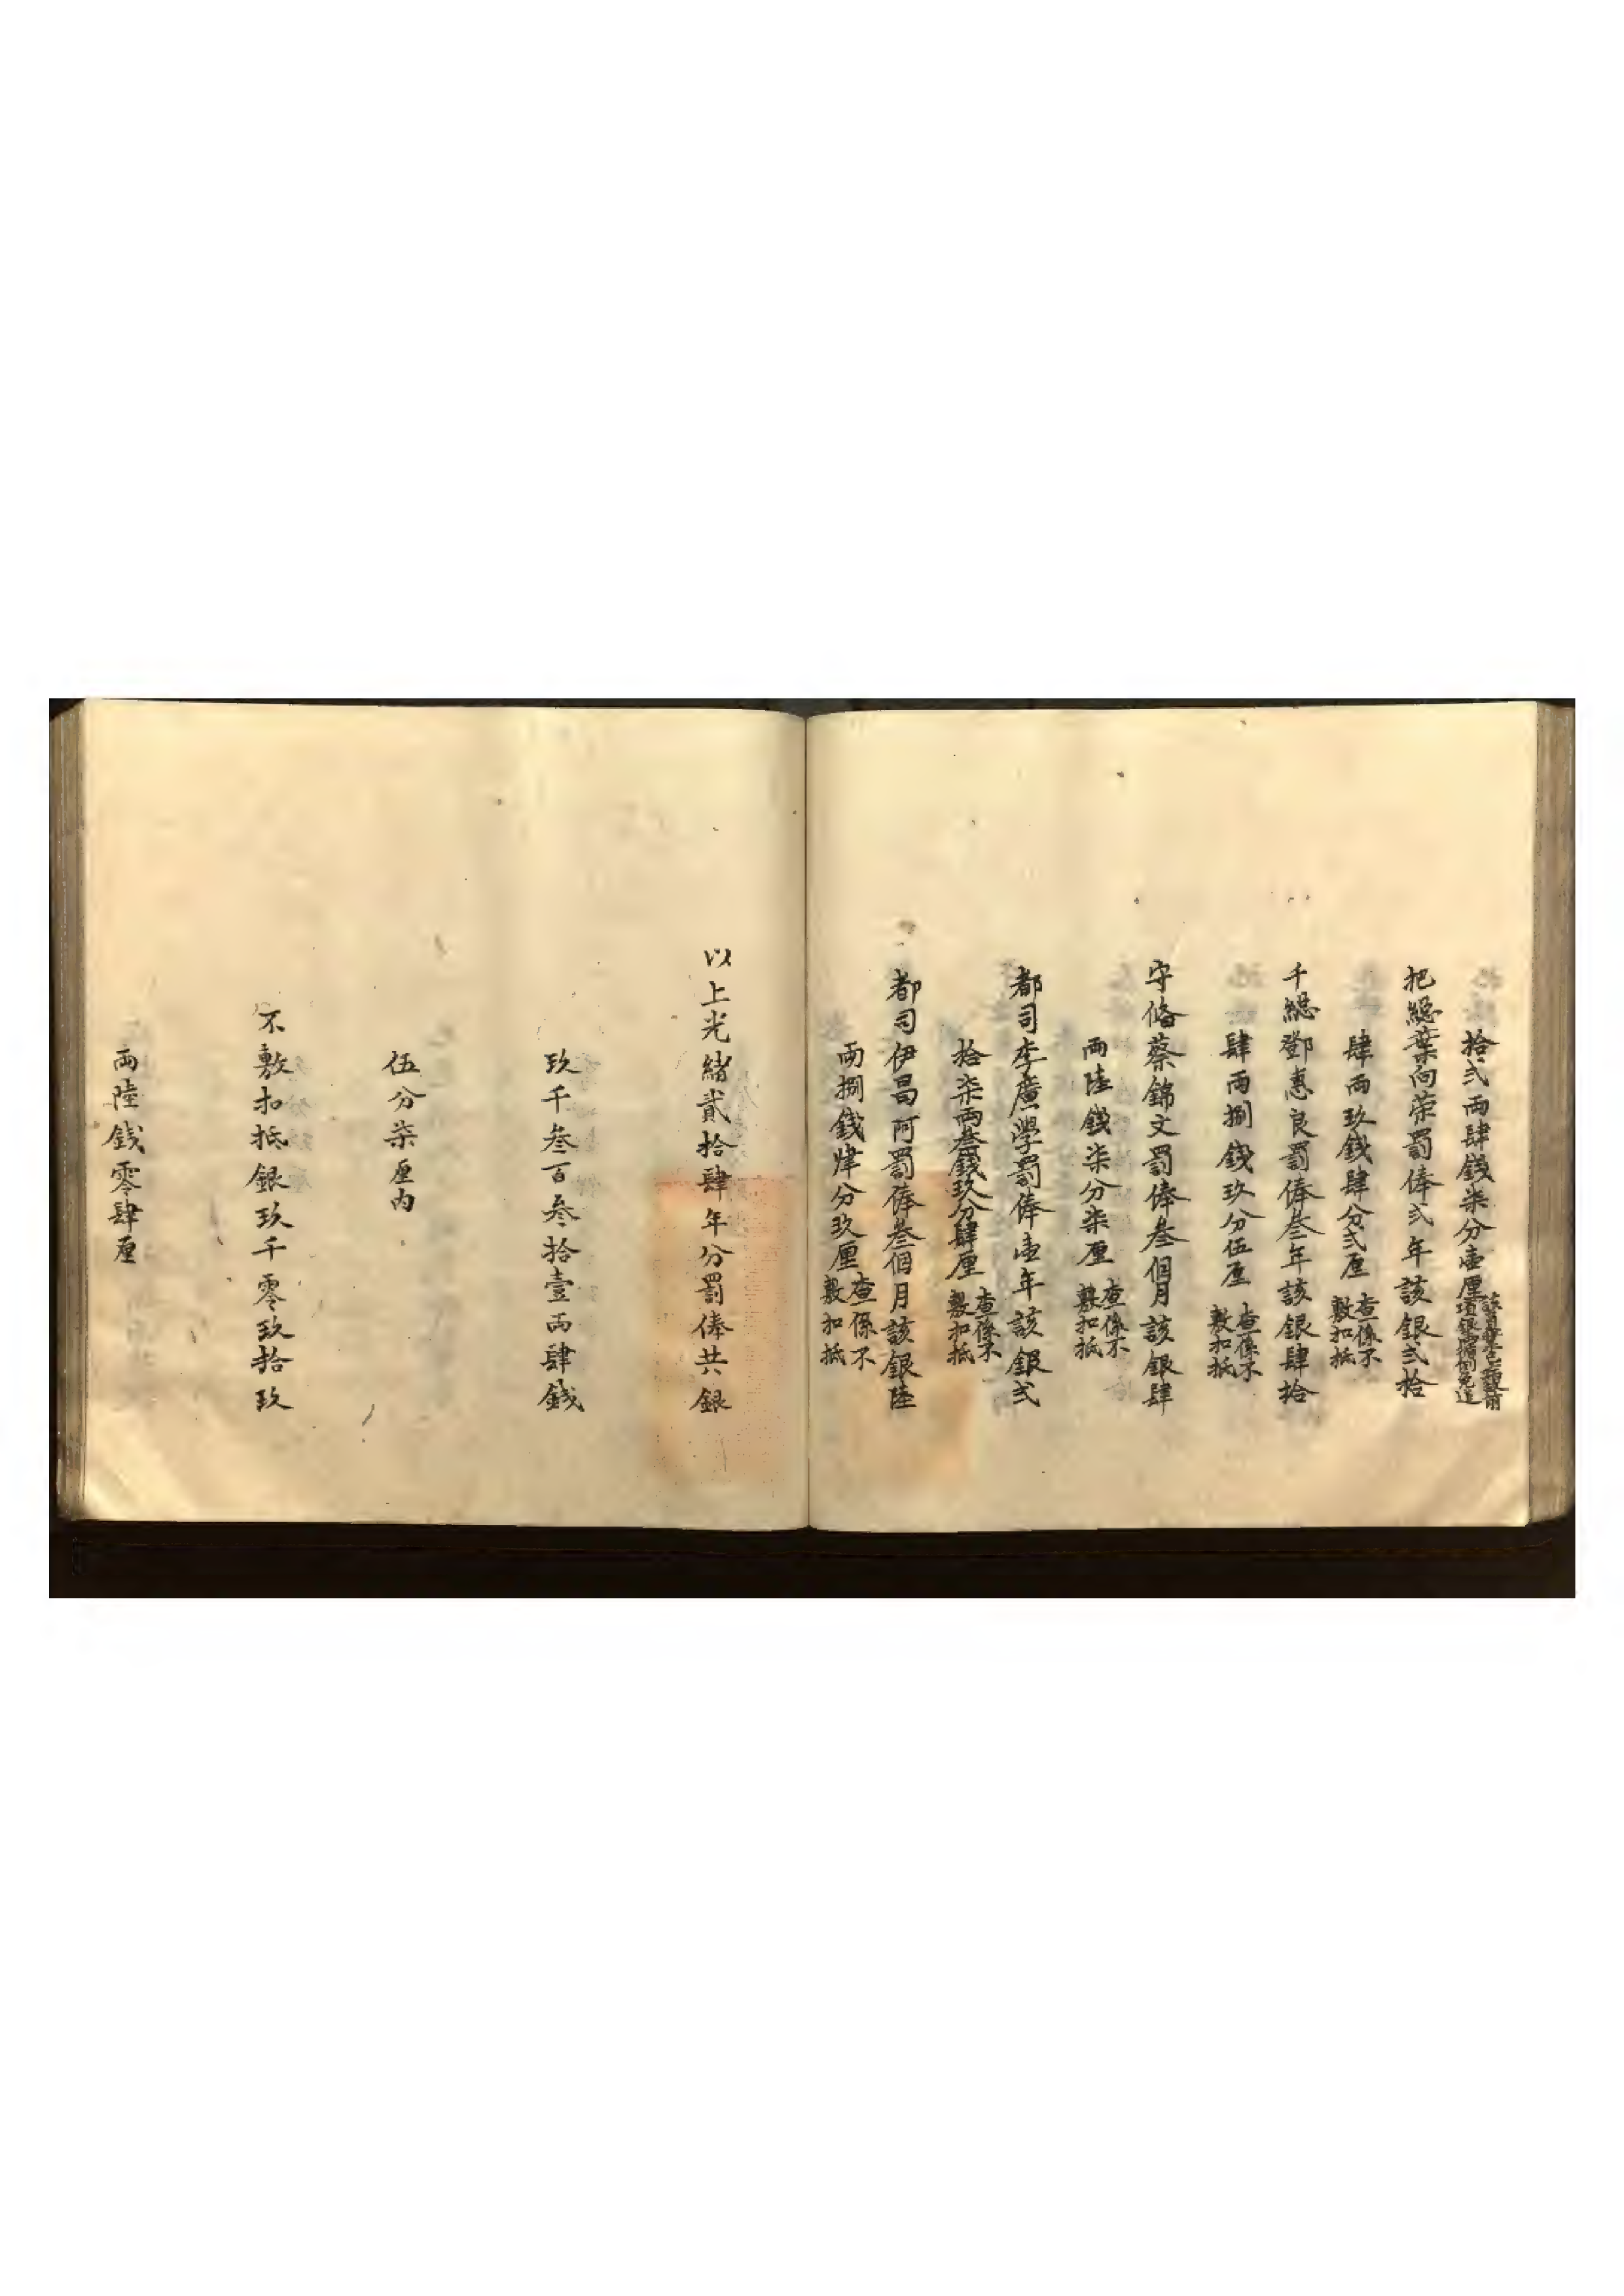 拾弍兩肆錢柒分壹厘
把總葉向荣罰俸弍年該銀弍拾
肆兩玖錢肆分弍厘查係不敷扣抵
千總鄧惠良罰俸叁年該銀肆拾
肆兩捌錢玖分伍厘查係不敷扣抵
守俻蔡錦文罰俸叁個月該銀肆
兩陸錢柒分柒厘查係不敷扣抵
都司李廣學罰俸壹年該銀弍
拾柒兩叁錢玖分肆厘查係不敷扣抵
都司伊昌阿罰俸叁個月該銀陸
兩捌錢肆分玖厘查係不敷扣抵
以上光緒貳拾肆年分罰俸共銀
玖千叁百叁拾壹兩肆錢
伍分柒厘内
不敷扣抵銀玖千零玖拾玖
兩陸錢零肆厘